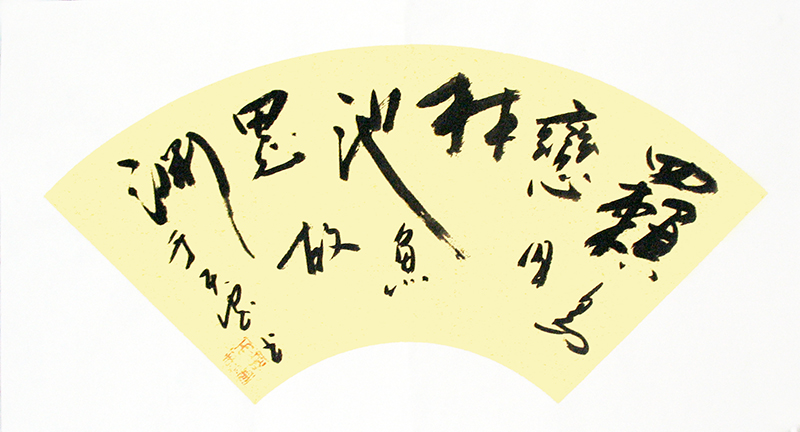 羈鳥
戀旧
林
池魚
思故
淵